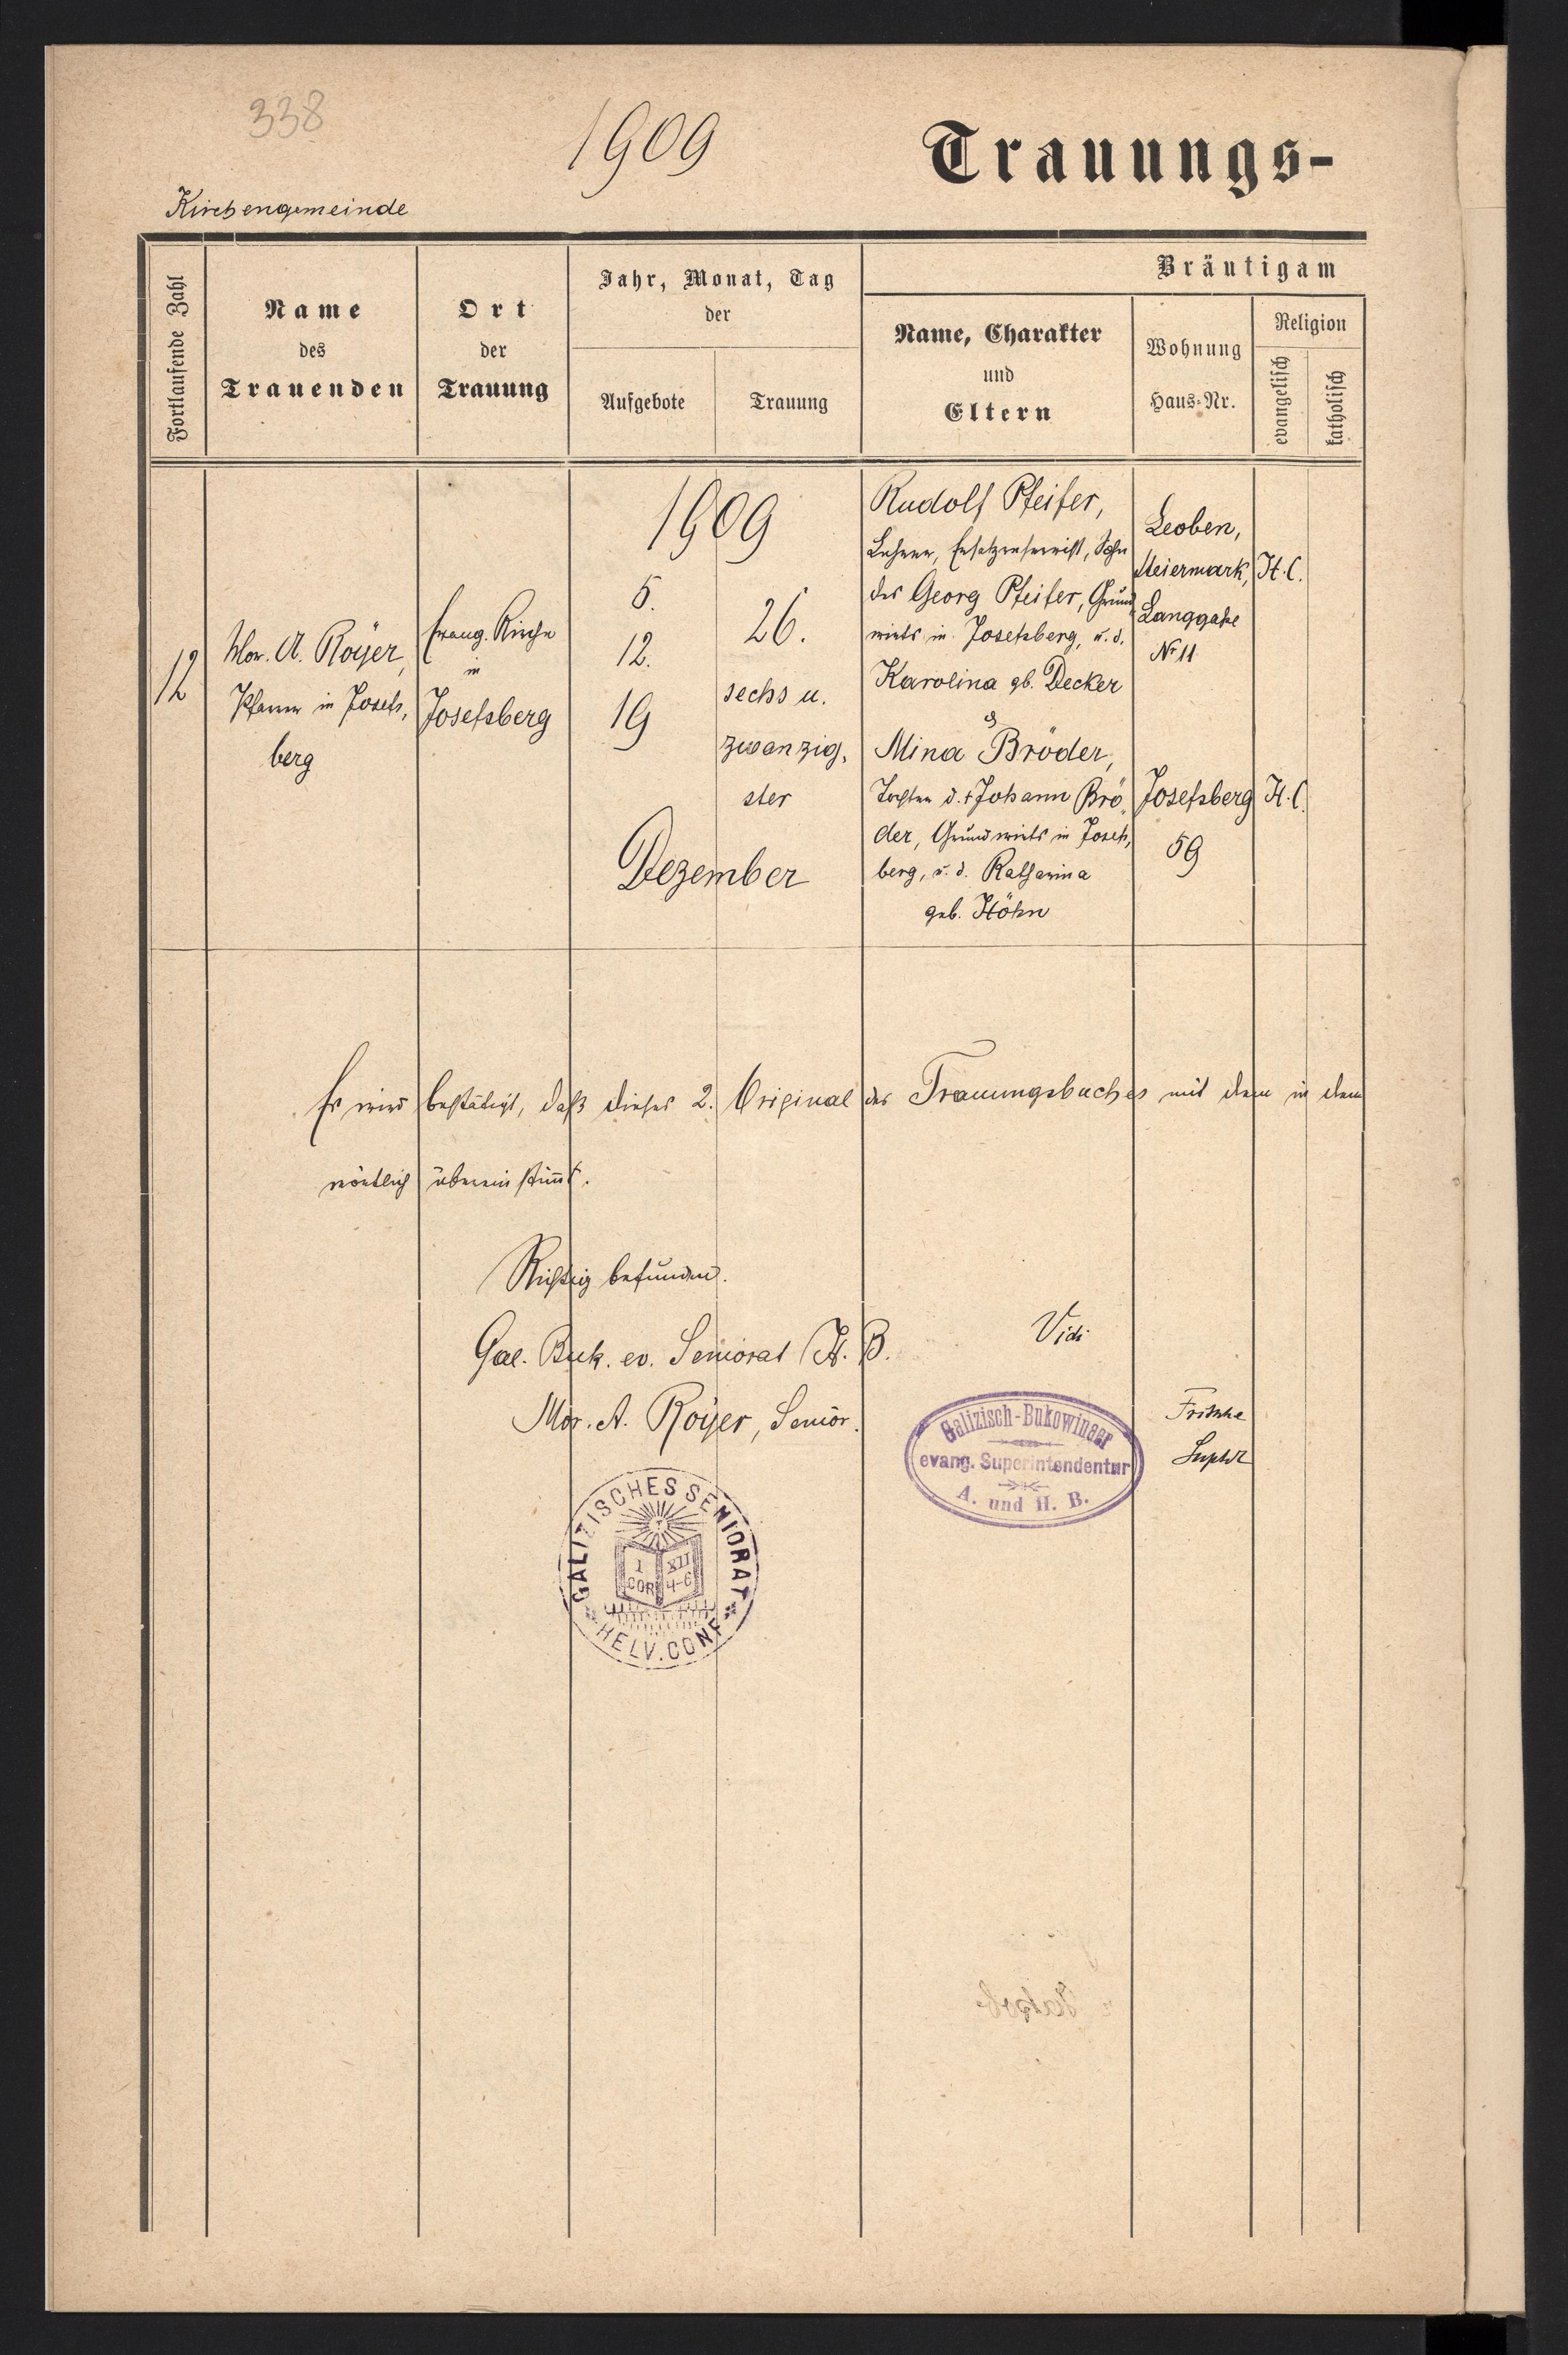 338
1909
Trauungs-
Kirchengemeinde
Fortlaufende Zahl
Name
des
Trauenden
Ort
der
Trauung
Jahr, Monat, Tag
der
Aufgebote
Trauung
Bräutigam
Name, Charakter
und
Eltern
Wohnung
Haus-Nr.
Religion
evangelisch
katholisch
12
Mor. A. Royer,
Pfarrer in Josefs,
berg
Evang. Kirche
in
Josefsberg
1909
5.
12.
19
26.
sechs u.
zwanzig,
ster
Dezember
Rudolf Pfeifer,
Lehrer, Ersatzreservist, Sohn
des Georg Pfeifer, Grund
wirts in Josefsberg, u. d.
Karolina gb. Decker
&
Mina Bröder,
Tochter d. + Johann Brö,
der, Grundwirts in Josefs,
berg, u. d. Katharina
geb. Höhn
Leoben,
Steiermark,
Langgaße
No 11
H. C.
Josefsberg
59
H. C.
Es wird bestätigt, daß dieses 2. Original des Trauungsbuches mit dem in dem
wörtlich übereinstimt.
Richtig befunden.
Gal. Buk. ev. Seniorat H. B.
Mor. A. Royer, Senior.
Vidi
Fritsche
Suptdt
Galizisch-Bukowinaer
evang. Superintendentur
A. und H. B.
GALIZISCHES SENIORAT
I COR XII 4-6
HELV. CONF